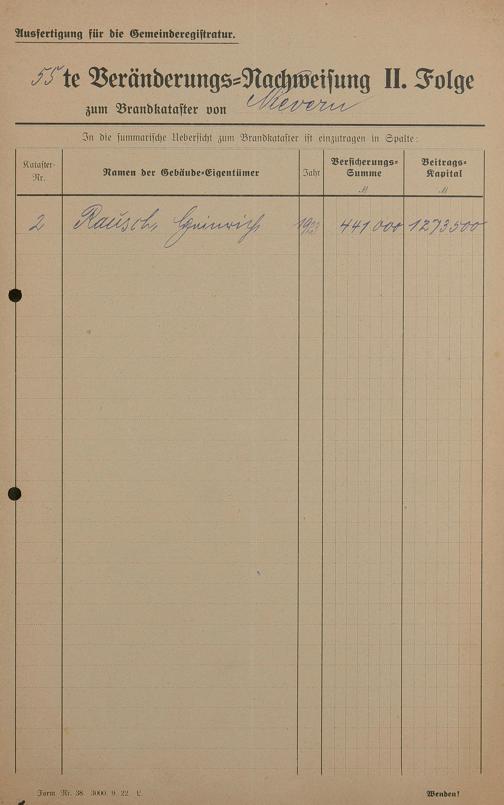 Ausfertigung für die Gemeinderegistratur.
55te Veränderungs=Nachweisung II. Folge
zum Brandkataster von Mevern
In die summarische Uebersicht zum Brandkataster ist einzutragen in Spalte:
Kataster- Nr. Namen der Gebäude=Eigentümer Jahr Versicherungs= Summe M Beitrags= Kapital M
2 Rausch, Heinrich 441 000 1273500
Form Nr. 38. 3000. 9. 22. L.
Wenden!